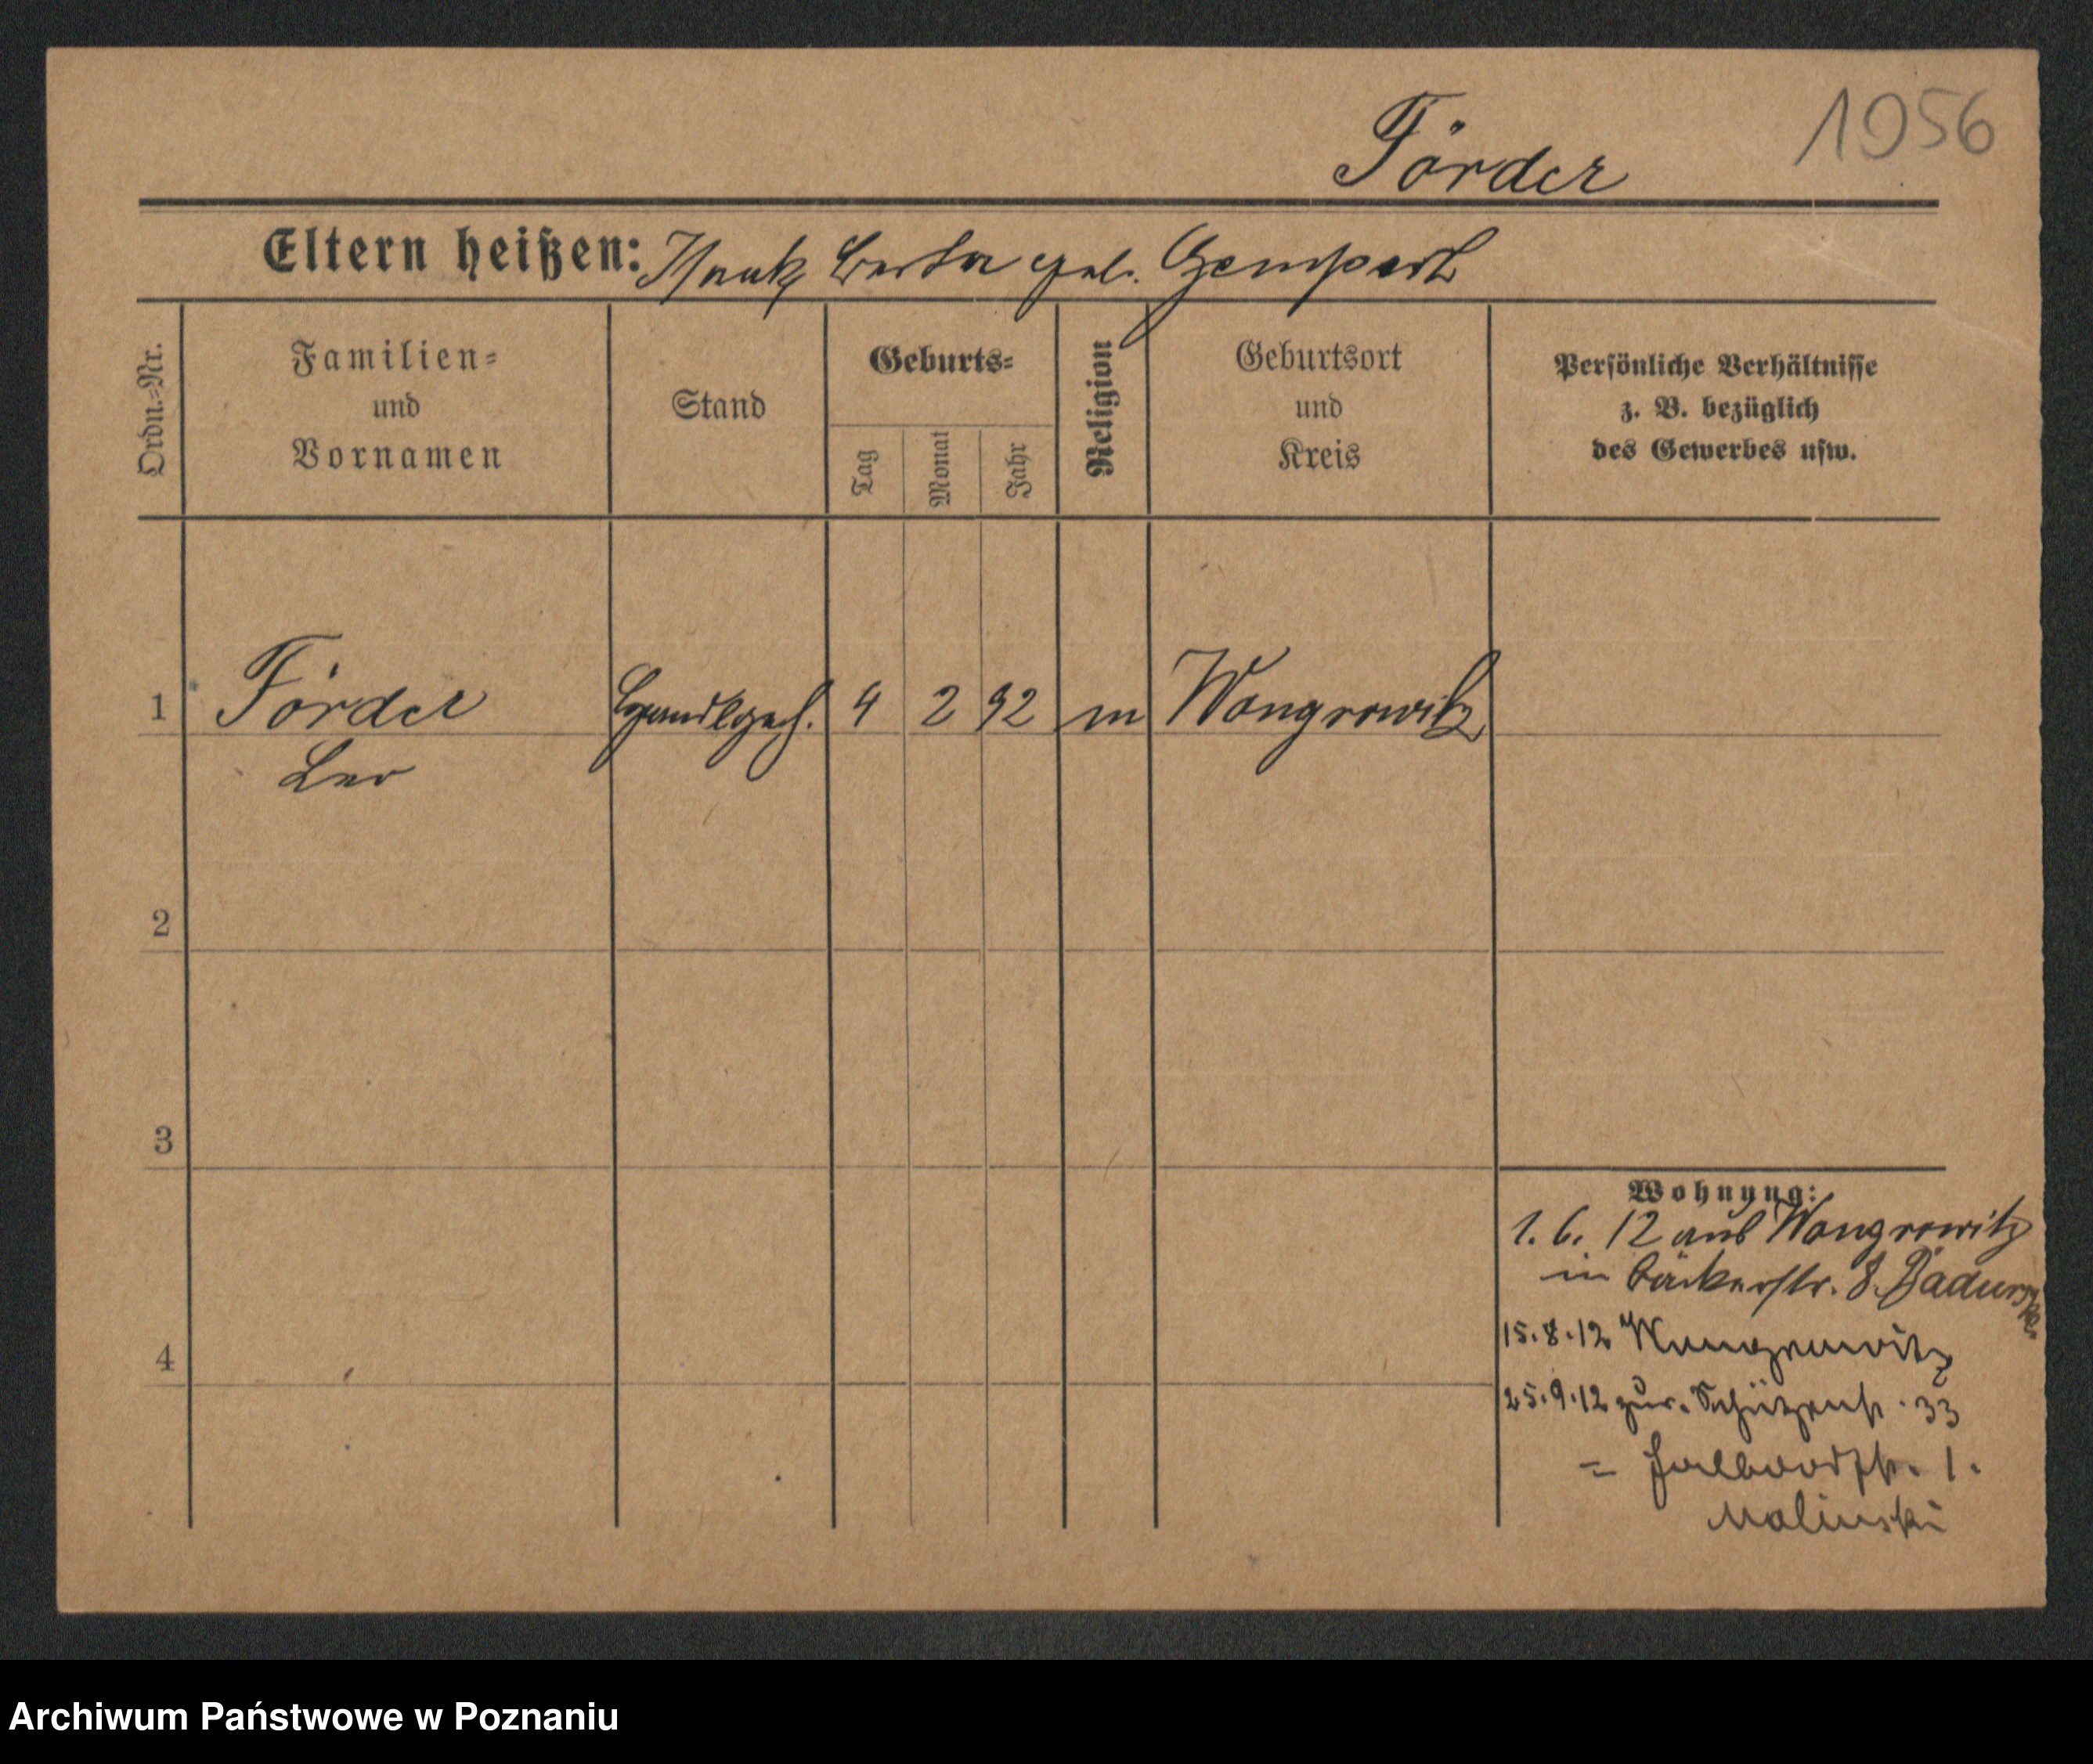 1056
Förder
Eltern heißen: Isaak, Berta geb. Gempert
Ordn.-Nr.
Familien-
und
Vornamen
Stand
Geburts-
Tag
Monat
Jahr
Religion
Geburtsort
und
Kreis
Persönliche Verhältnisse
z. B. bezüglich
des Gewerbes usw.
1 Förder Handlgeh. 4 2 92 m Wongrowitz
Leo
2
3
4
Wohnung:
1. 6. 12 aus Wongrowitz
in Bäckerstr. 8.
15.8.12 Wongrowitz
25.9.12 zur. Schützenstr. 33
= Halbdorfstr. 1.
Malinski
Archiwum Państwowe w Poznaniu